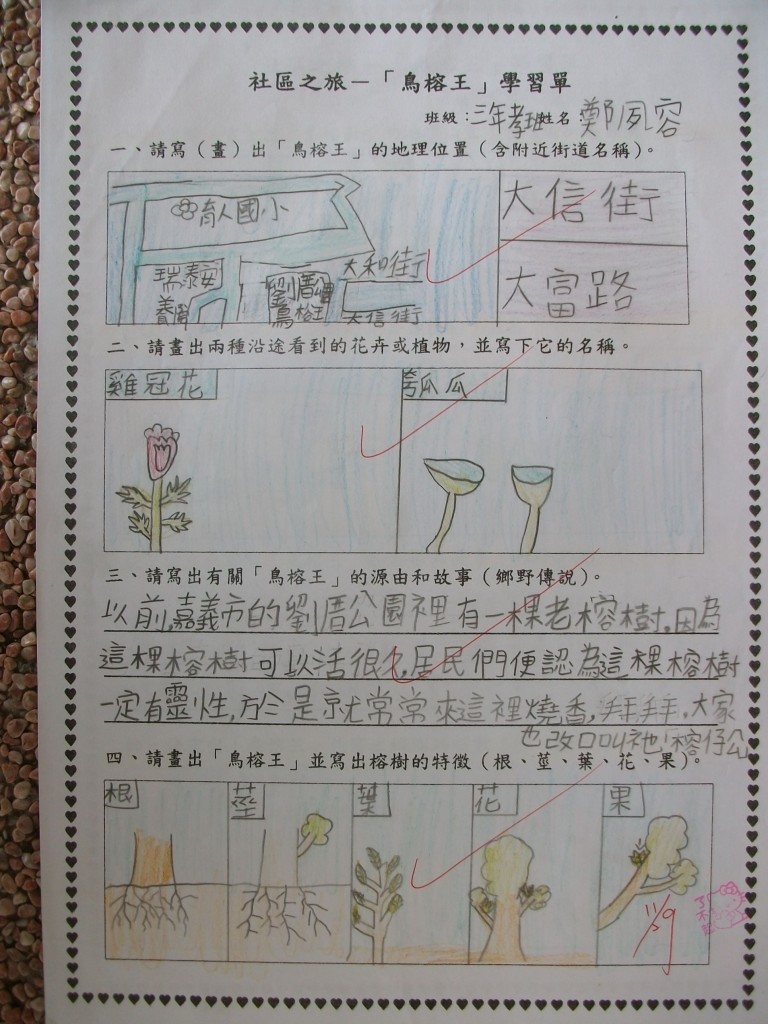 社區之旅－「鳥榕王」學習單
班級：三年孝班姓名：鄭夙容
一、請寫（畫）出「鳥榕王」的地理位置（含附近街道名稱）。
育人國小
大信街
瑞泰安養
劉厝公園鳥榕王
大和街
大信街
大富路
二、請畫出兩種沿途看到的花卉或植物，並寫下它的名稱。
雞冠花
瓜
三、請寫出有關「鳥榕王」的源由和故事（鄉野傳說）。
以前,嘉義市的劉厝公園裡有一棵老榕樹,因為
這棵榕樹可以活很久,居民們便認為這棵榕樹
一定有靈性,於是就常常來這裡燒香,拜拜.大家
也改口叫祂榕仔公
四、請畫出「鳥榕王」並寫出榕樹的特徵（根、莖、葉、花、果）。
根
莖
葉
花
果
11/9
了不起